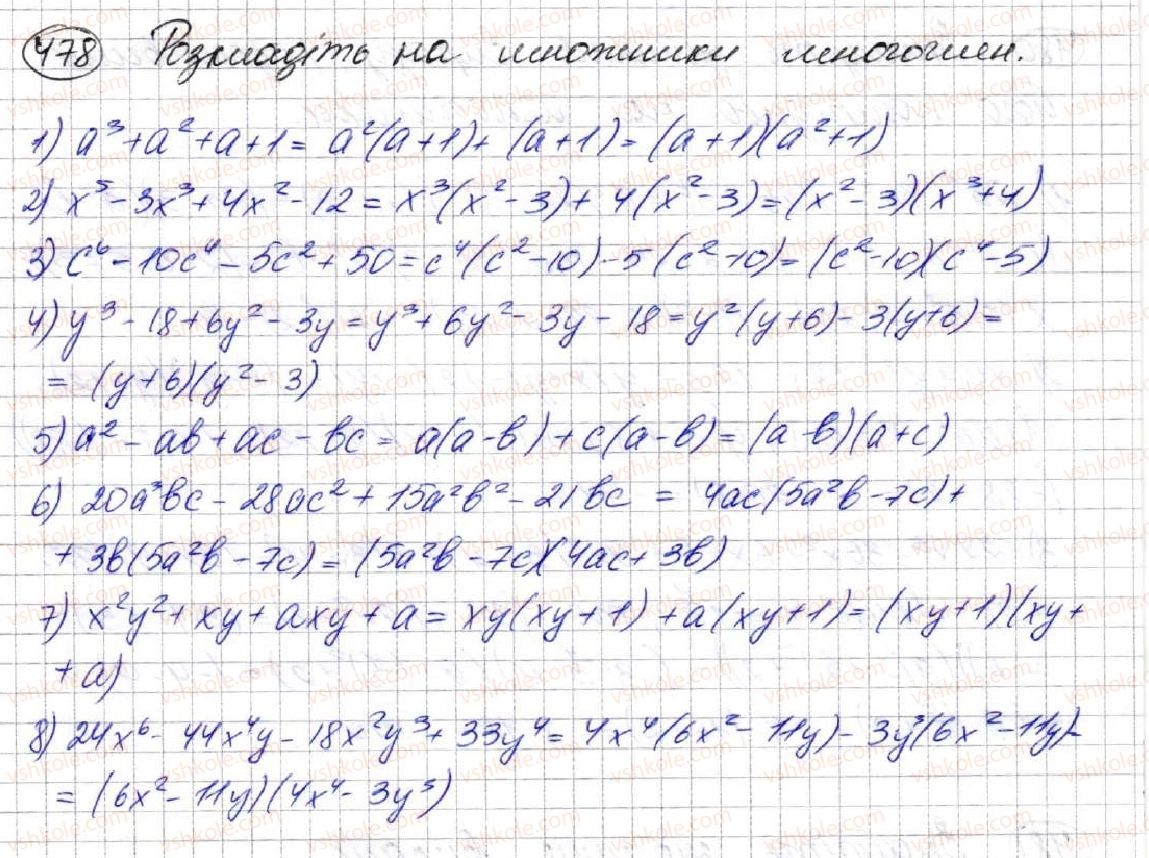 478 Розкладіть на множники многочлен.
1) a³+a²+a+1= a²(a+1)+ (a+1)= (a+1)(a²+1)
2) x⁵-3x³+4x²-12=x³(x²-3)+ 4(x²-3)=(x²-3)(x³+4)
3) c⁶-10c⁴-5c²+50=c⁴(c²-10)-5(c²-10)=(c²-10)(c⁴-5)
4) y³-18+6y²-3y=y³+6y²-3y-18=y²(y+6)-3(y+6)=
= (y+6)(y²-3)
5) a²-ab+ac-bc= a(a-b)+c(a-b)=(a-b)(a+c)
6) 20a³bc-28ac²+15a²b²-21bc = 4ac(5a²b-7c)+
+ 3b(5a²b-7c)=(5a²b-7c)(4ac+3b)
7) x²y²+xy+axy+a= xy(xy+1)+a(xy+1)=(xy+1)(xy+
+a)
8) 24x⁶-44x⁴y-18x²y³+33y⁴=4x⁴(6x²-11y)-3y³(6x²-11y)=
= (6x²-11y)(4x⁴-3y³)